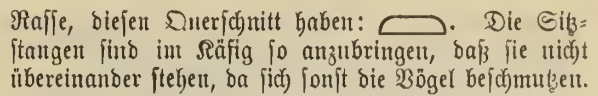 Rasse, diesen Querschnitt haben: . Die Sitz=
stangen sind im Käfig so anzubringen, daß sie nicht
übereinander stehen, da sich sonst die Vögel beschmutzen.